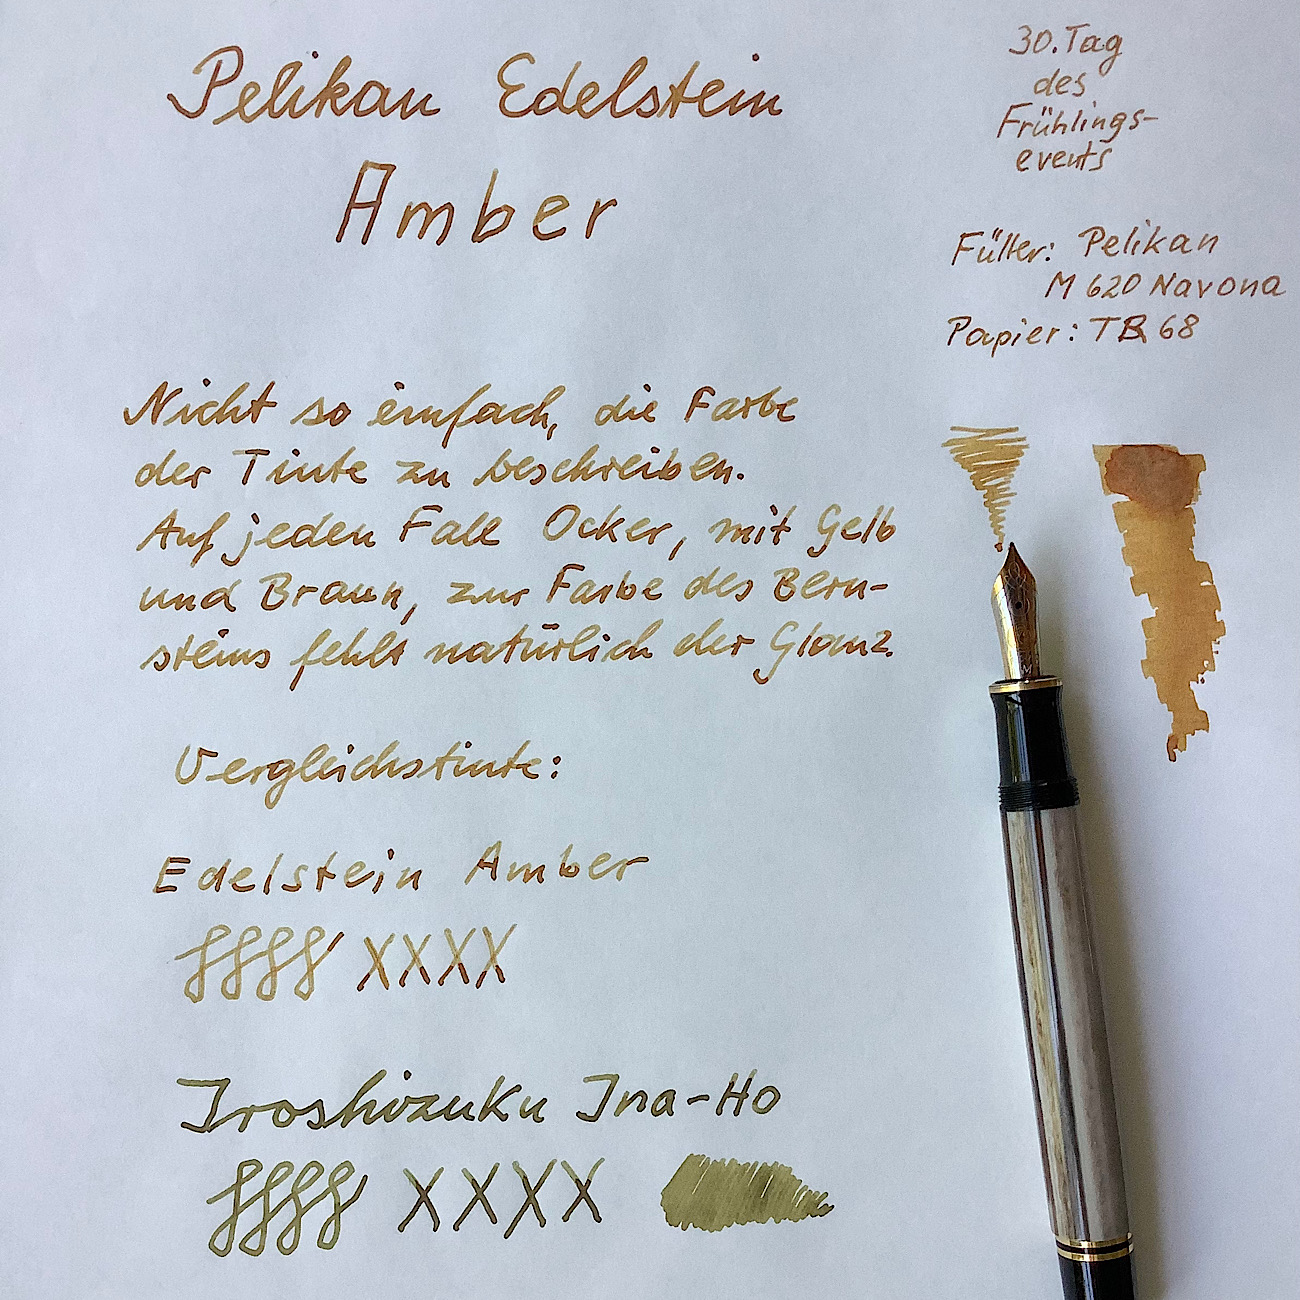 Pelikan Edelstein
Amber
30. Tag
des
Frühlings-
events
Füller: Pelikan
M 620 Navona
Papier: TR 68
Nicht so einfach, die Farbe
der Tinte zu beschreiben.
Auf jeden Fall Ocker, mit Gelb
und Braun, zur Farbe des Bern-
steins fehlt natürlich der Glanz.
Vergleichstinte:
Edelstein Amber
ffff XXXX
Iroshizuku Ina-Ho
ffff XXXX